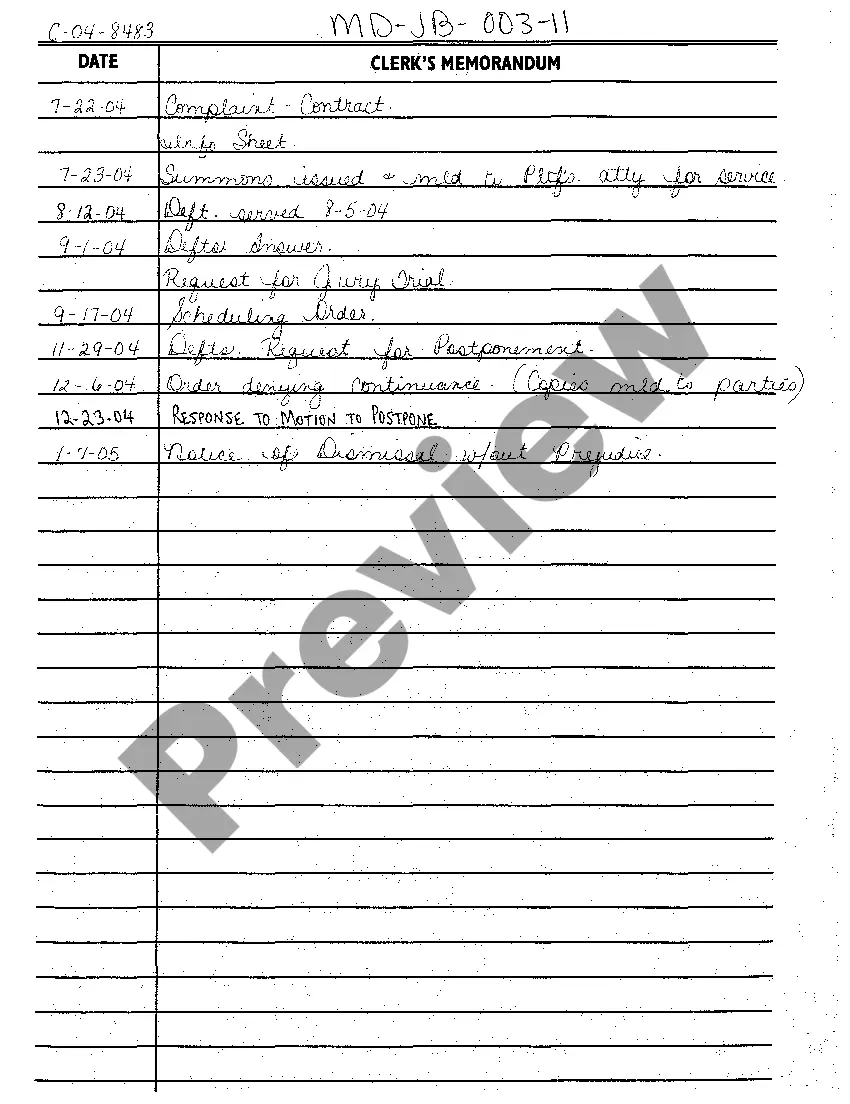 C-04-8483 MD-JB-003-11
DATE CLERK'S MEMORANDUM
7-22-04 Complaint - Contract.
Sheet.
7-23-04 Summons issued & mld to Pltfs. atty for service.
8-12-04 Deft. served 8-5-04
9-1-04 Defts Answer.
Request for Jury Trial.
9-17-04 Scheduling Order.
11-29-04 Defts. Request for Postponement.
12-6-04 Order denying continuance. (Copies mld to parties)
12-23-04 RESPONSE TO MOTION TO POSTPONE
1-7-05 Notice of Dismissal w/out Prejudice.
Preview